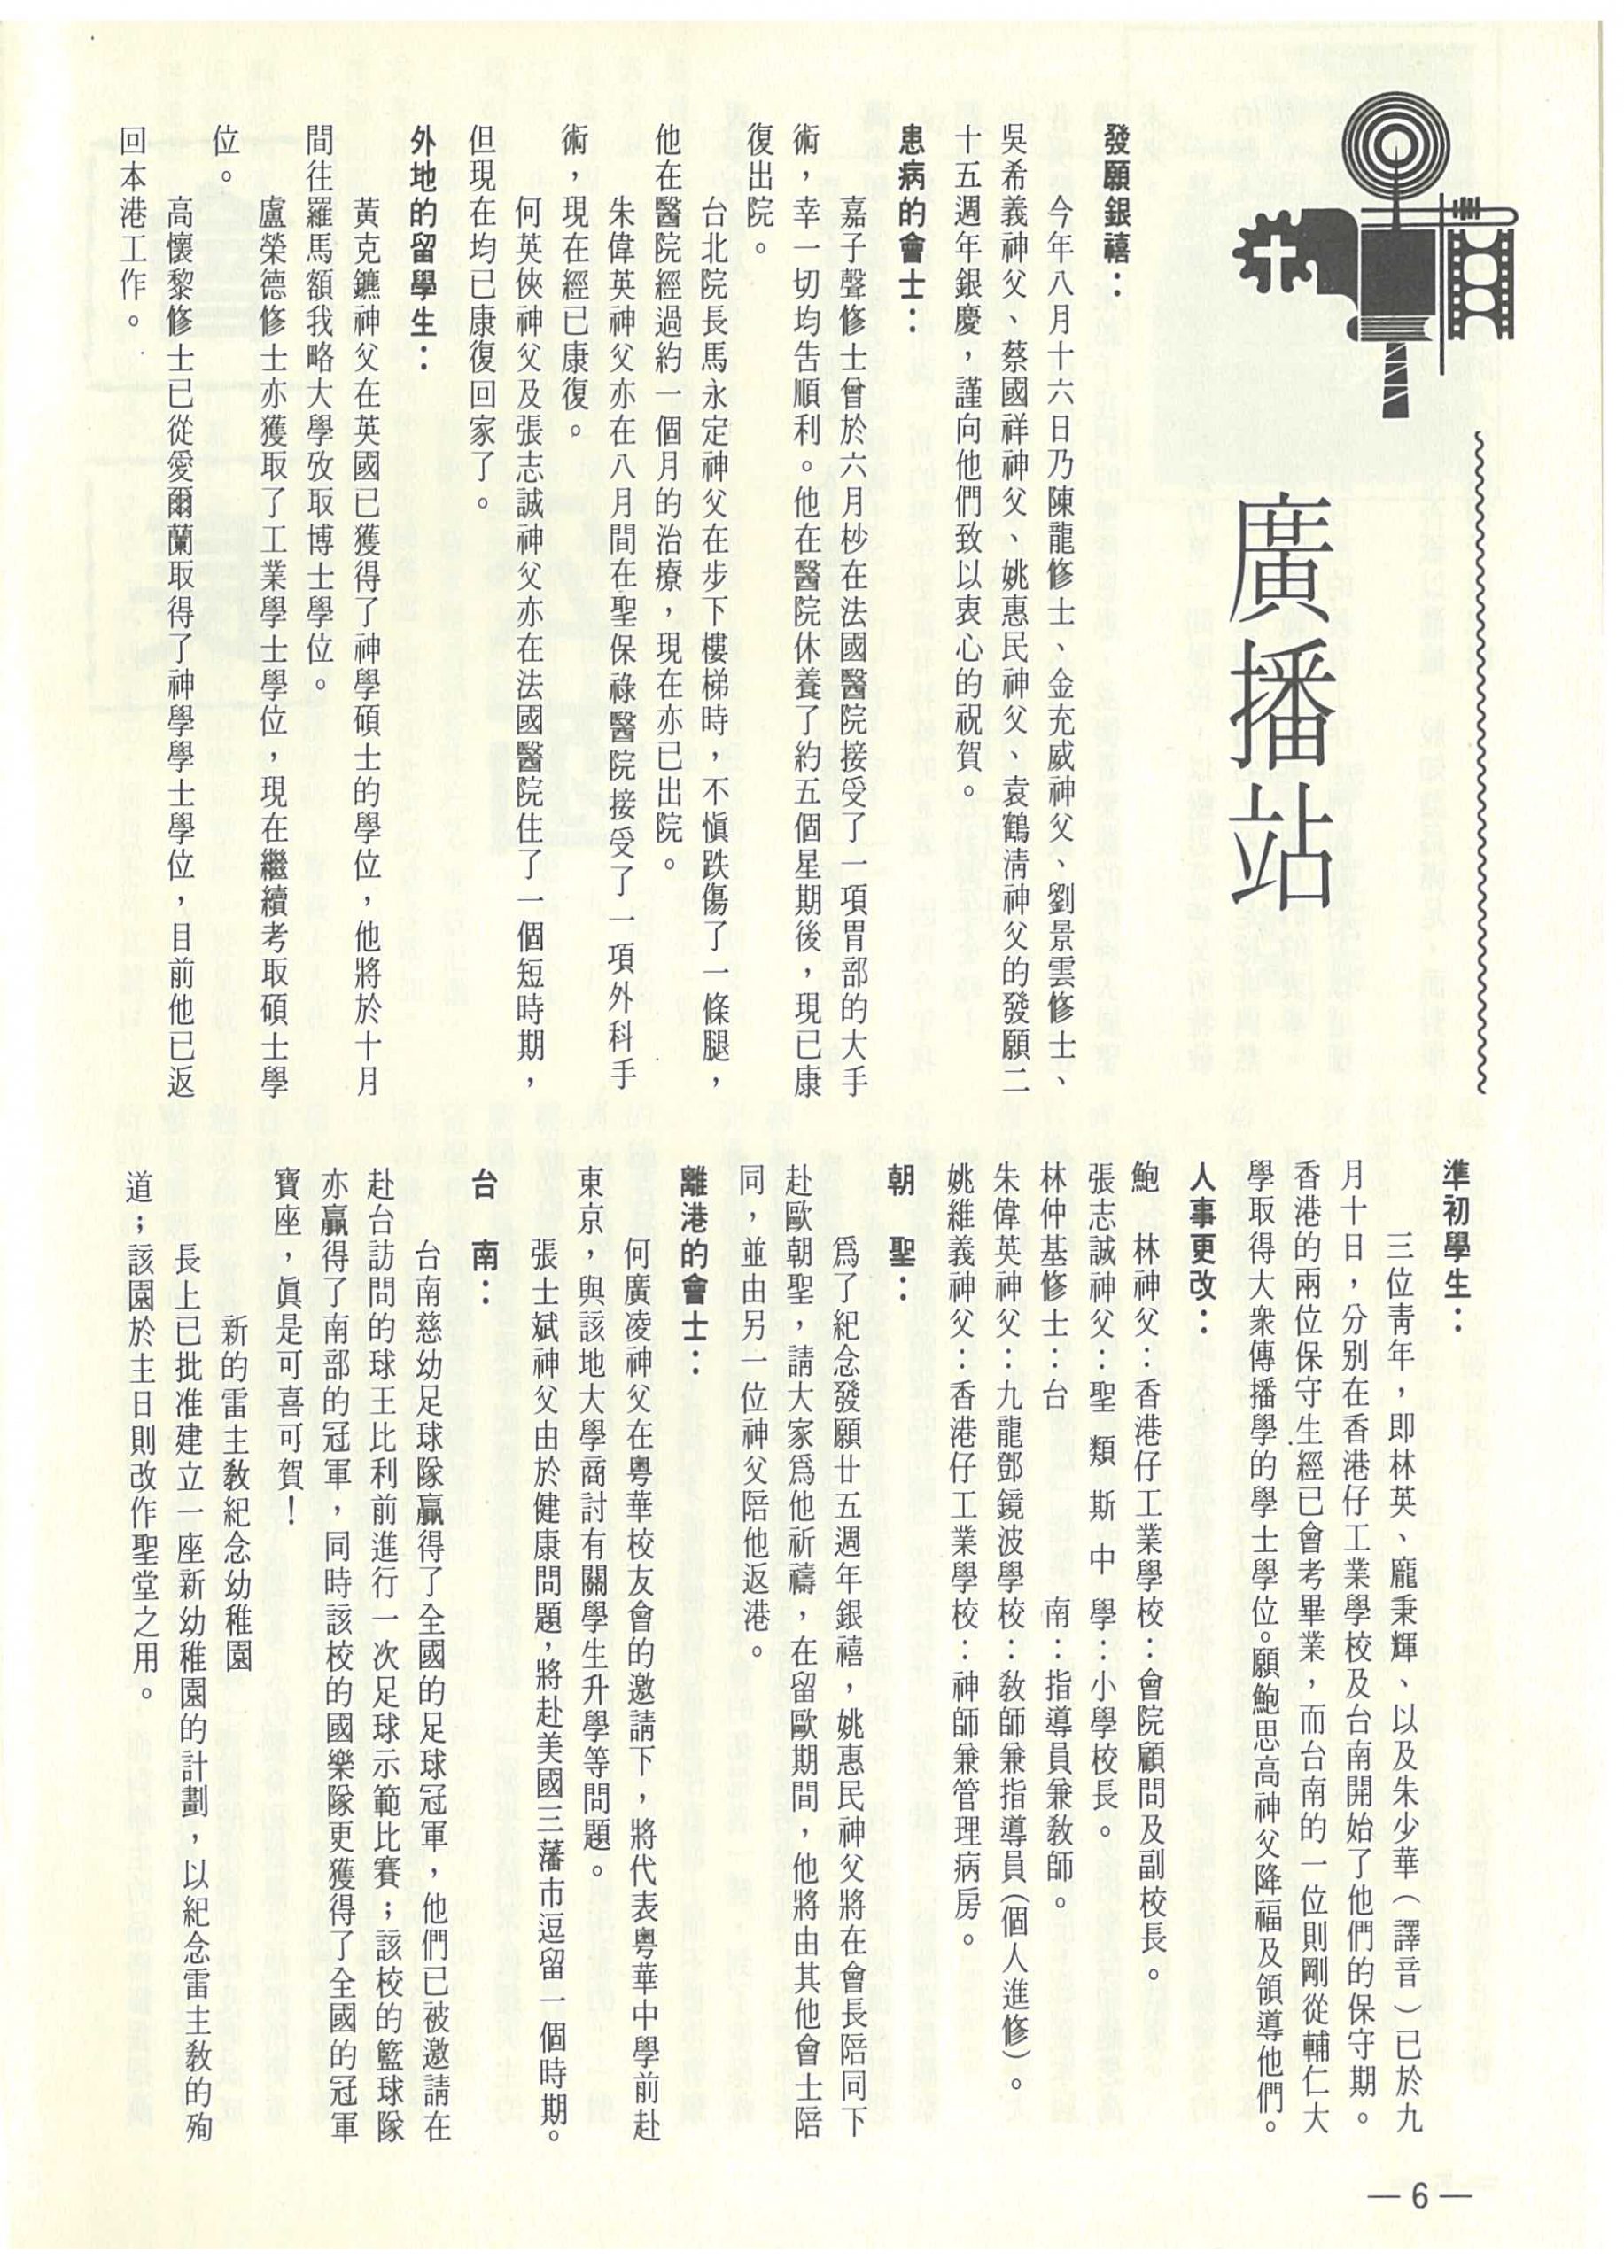 廣播站
發願銀禧：
今年八月十六日乃陳龍修士、金充威神父、劉景雲修士、
吳希義神父、蔡國祥神父、姚惠民神父、袁鶴清神父的發願二
十五週年銀慶，謹向他們致以衷心的祝賀。
患病的會士：
嘉子聲修士曾於六月杪在法國醫院接受了一項胃部的大手
術，幸一切均告順利。他在醫院休養了約五個星期後，現已康
復出院。
台北院長馬永定神父在步下樓梯時，不愼跌傷了一條腿，
他在醫院經過約一個月的治療，現在亦已出院。
朱偉英神父亦在八月間在聖保祿醫院接受了一項外科手
術，現在經已康復。
何英俠神父及張志誠神父亦在法國醫院住了一個短時期，
但現在均已康復回家了。
外地的留學生：
黃克鑣神父在英國已獲得了神學碩士的學位，他將於十月
間往羅馬額我略大學攷取博士學位。
盧榮德修士亦獲取了工業學士學位，現在繼續考取碩士學
位。
高懷黎修士已從愛爾蘭取得了神學學士學位，目前他已返
回本港工作。
準初學生：
三位靑年，即林英、龐秉輝、以及朱少華（譯音）已於九
月十日，分別在香港仔工業學校及台南開始了他們的保守期。
香港的兩位保守生經已會考畢業，而台南的一位則剛從輔仁大
學取得大衆傳播學的學士學位。願鮑思高神父降福及領導他們。
人事更改：
鮑　林神父：香港仔工業學校：會院顧問及副校長。
張志誠神父：聖類斯中學：小學校長。
林仲基修士：台　　南：指導員兼敎師。
朱偉英神父：九龍鄧鏡波學校：敎師兼指導員（個人進修）。
姚維義神父：香港仔工業學校：神師兼管理病房。
朝　聖：
爲了紀念發願廿五週年銀禧，姚惠民神父將在會長陪同下
赴歐朝聖，請大家爲他祈禱，在留歐期間，他將由其他會士陪
同，並由另一位神父陪他返港。
離港的會士：
何廣凌神父在粵華校友會的邀請下，將代表粵華中學前赴
東京，與該地大學商討有關學生升學等問題。
張士斌神父由於健康問題，將赴美國三藩市逗留一個時期。
台　南：
台南慈幼足球隊贏得了全國的足球冠軍，他們已被邀請在
赴台訪問的球王比利前進行一次足球示範比賽；該校的籃球隊
亦贏得了南部的冠軍，同時該校的國樂隊更獲得了全國的冠軍
寶座，眞是可喜可賀！
新的雷主敎紀念幼稚園
長上已批准建立一座新幼稚園的計劃，以紀念雷主敎的殉
道；該園於主日則改作聖堂之用。
— 6 —